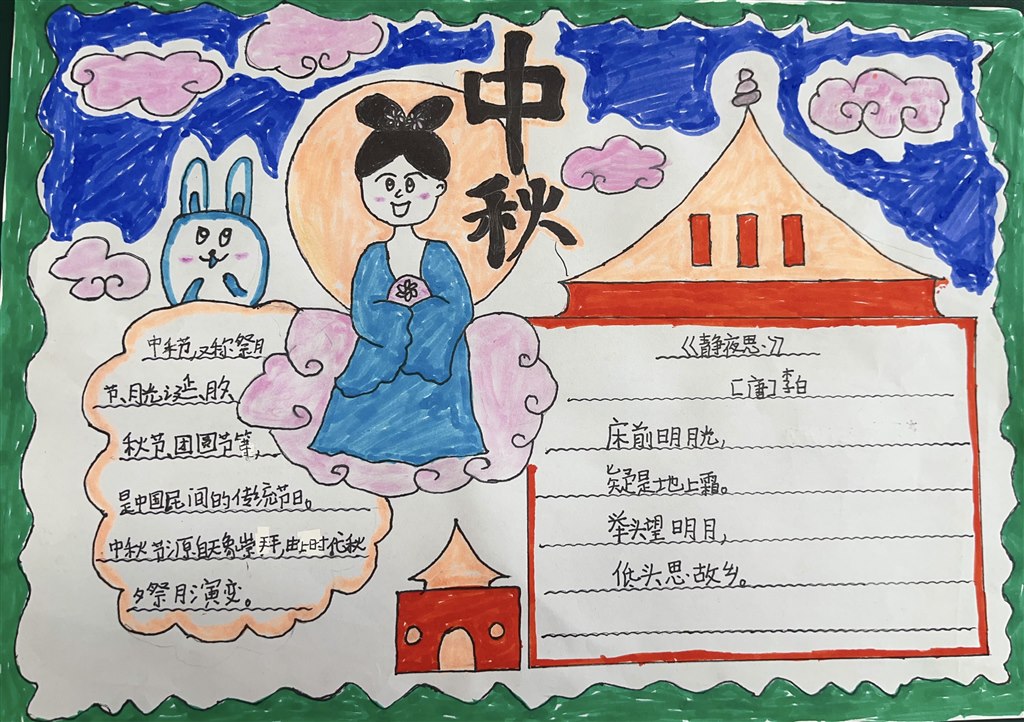 中秋
中秋节,又称祭月
节、月光诞、月夕、
秋节、团圆节等,
是中国民间的传统节日。
中秋节源自天象崇拜,由上时代秋
夕祭月演变。
《静夜思》
[唐]李白
床前明月光,
疑是地上霜。
举头望明月,
低头思故乡。